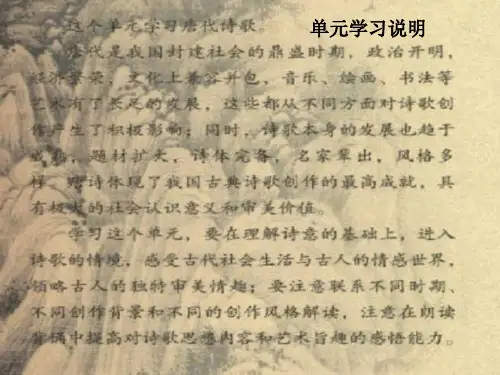 单元学习说明
这个单元学习唐代诗歌。
唐代是我国封建社会的鼎盛时期，政治开明，
经济繁荣，文化上兼容并包，音乐、绘画、书法等
艺术有了长足的发展，这些都从不同方面对诗歌创
作产生了积极影响；同时，诗歌本身的发展也趋于
成熟，题材扩大，诗体完备，名家辈出，风格多
样。唐诗体现了我国古典诗歌创作的最高成就，具
有极大的社会认识意义和审美价值。
学习这个单元，要在理解诗意的基础上，进入
诗歌的情境，感受古代社会生活与古人的情感世界，
领略古人的独特审美情趣；要注意联系不同时期、
不同创作背景和不同的创作风格解读，注意在朗读
背诵中提高对诗歌思想内容和艺术旨趣的感悟能力。